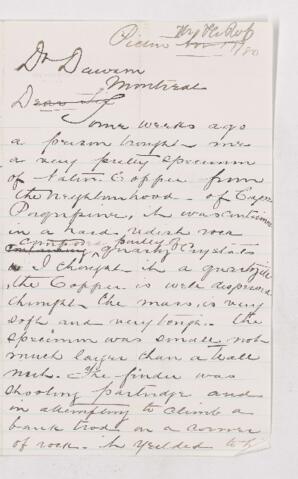 Pictou Nov 80
Dr Dawson
Montreal
Dear Sir
Some weeks ago
a person brought me
a very pretty specimen
of native Copper from
the neighbourhood of Cape
Porqupine, it was contained
in a hard redish rock
composed partly of
quartz Crystals
I thought it a quartzite
the Copper is well dispersed
through the mass, is very
soft and very tough. the
specimen was small not
much larger than a wall
nut. The finder was
shooting partridge and
in attempting to climb a
bank trod on a corner
of rock. it yeilded to his